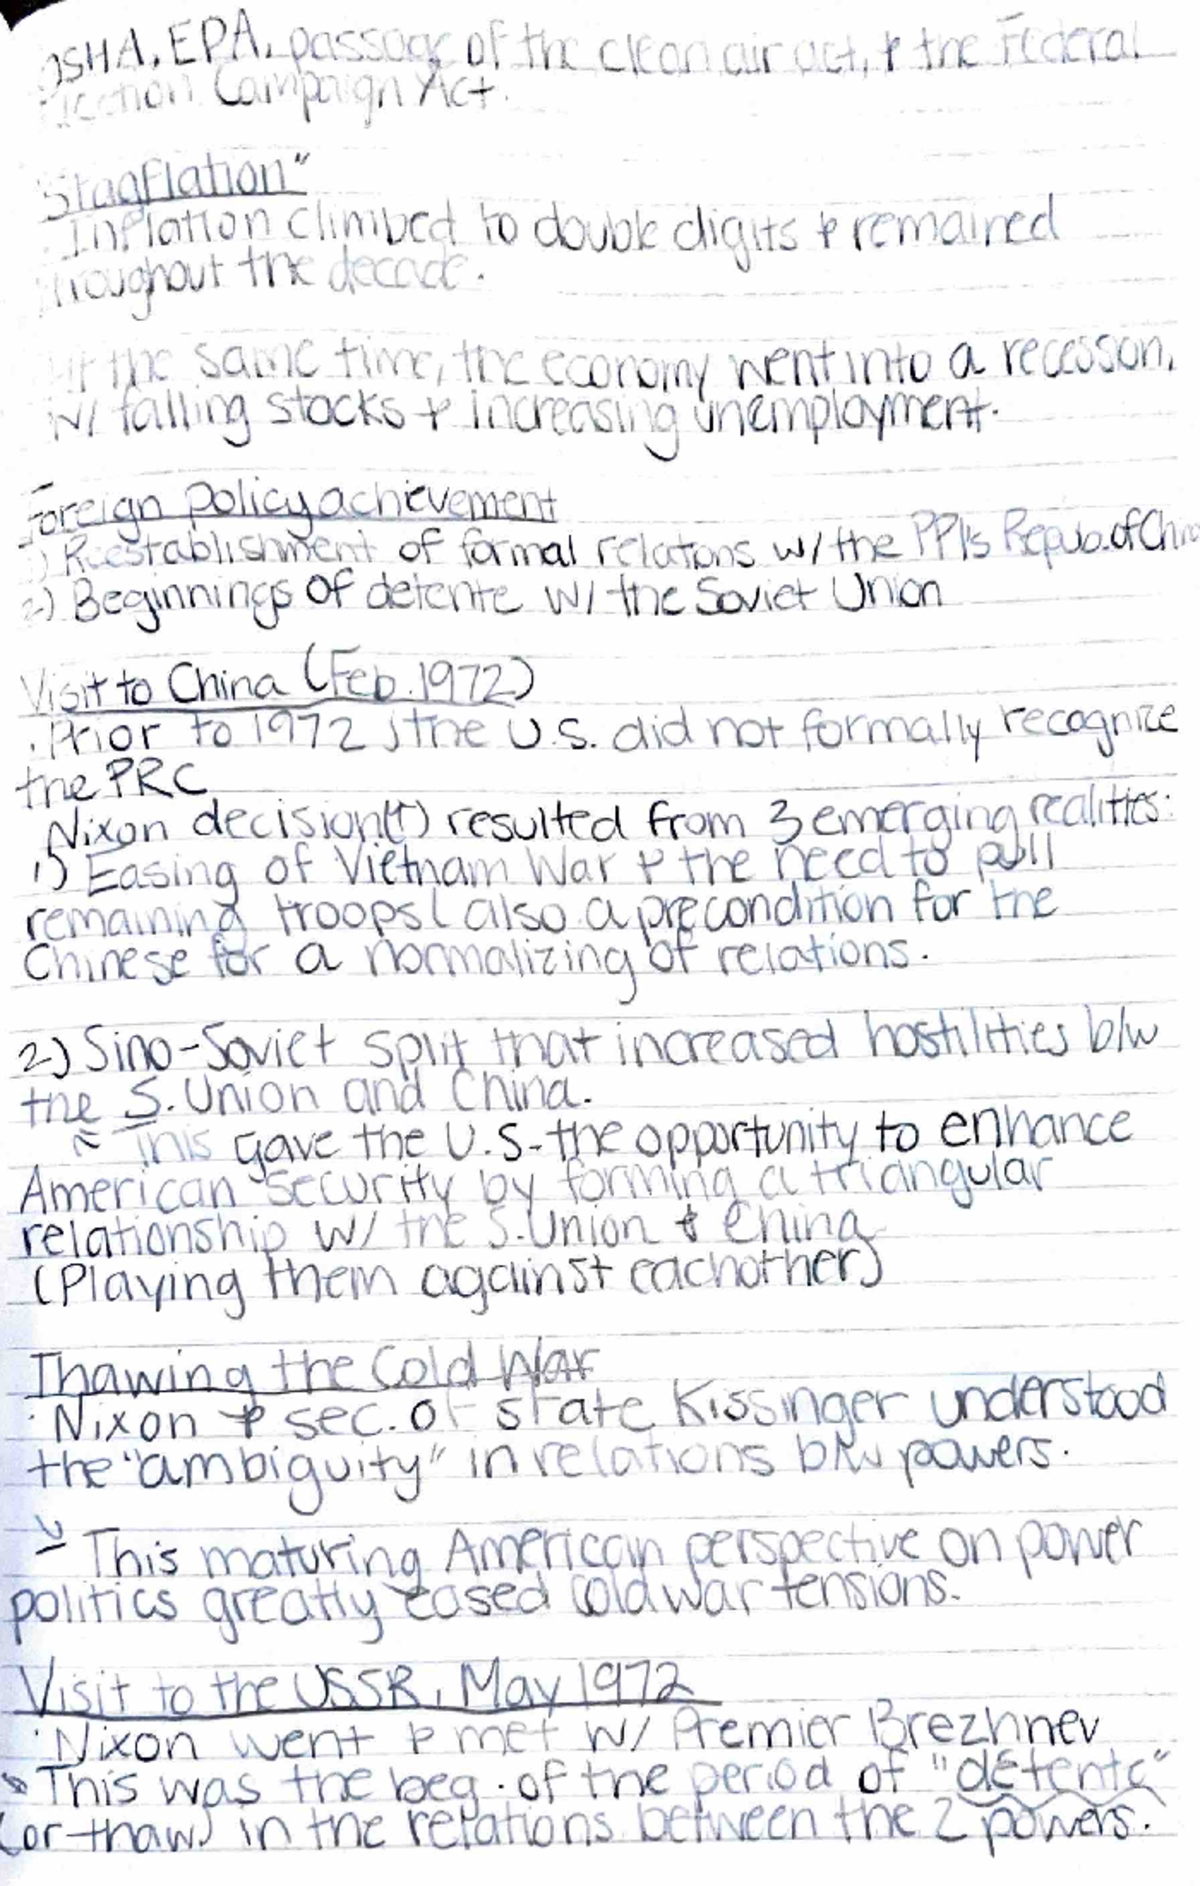 OSHA, EPA, passage of the clean air act, & the Federal
Election Campaign Act.
"Stagflation"
· Inflation climbed to double digits & remained
throughout the decade.
At the same time, the economy went into a recesson,
w/ falling stocks & increasing unemployment.
Foreign policy achievement
1) Reestablishment of formal relations w/ the PPl's Repub. of China
2) Beginnings of detente w/ the Soviet Union
Visit to China (Feb. 1972)
· Prior to 1972, the U.S. did not formally recognize
the PRC
Nixon decision(t) resulted from 3 emerging realities:
1) Easing of Vietnam War & the need to pull
remaining troops (also a precondition for the
Chinese for a normalizing of relations.
2) Sino-Soviet split that increased hostilities b/w
the S. Union and China.
This gave the U.S. the opportunity to enhance
American security by forming a triangular
relationship w/ the S. Union & China
(Playing them against eachother)
Thawing the Cold War
· Nixon & sec. of state Kissinger understood
the "ambiguity" in relations b/w powers.
This maturing American perspective on power
politics greatly eased cold war tensions.
Visit to the USSR, May 1972
· Nixon went & met w/ Premier Brezhnev
This was the beg. of the period of "détente"
(or thaw) in the relations between the 2 powers.